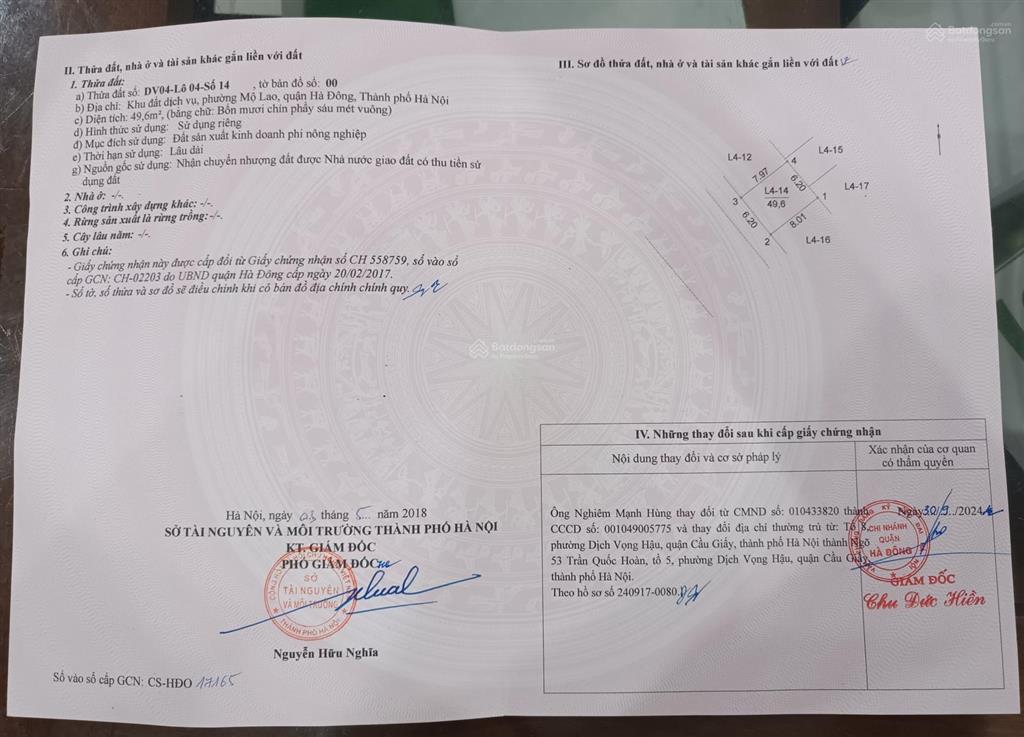 II. Thửa đất, nhà ở và tài sản khác gắn liền với đất
1. Thửa đất:
a) Thửa đất số: DV04-Lô 04-Số 14 , tờ bản đồ số: 00
b) Địa chỉ: Khu đất dịch vụ, phường Mộ Lao, quận Hà Đông, Thành phố Hà Nội
c) Diện tích: 49,6m², (bằng chữ: Bốn mươi chín phẩy sáu mét vuông)
d) Hình thức sử dụng: Sử dụng riêng
đ) Mục đích sử dụng: Đất sản xuất kinh doanh phi nông nghiệp
e) Thời hạn sử dụng: Lâu dài
g) Nguồn gốc sử dụng: Nhận chuyển nhượng đất được Nhà nước giao đất có thu tiền sử
dụng đất
2. Nhà ở: -/-.
3. Công trình xây dựng khác: -/-.
4. Rừng sản xuất là rừng trồng:-/-.
5. Cây lâu năm: -/-.
6. Ghi chú:
- Giấy chứng nhận này được cấp đổi từ Giấy chứng nhận số CH 558759, số vào sổ
cấp GCN: CH-02203 do UBND quận Hà Đông cấp ngày 20/02/2017.
- Số tờ, số thửa và sơ đồ sẽ điều chỉnh khi có bản đồ địa chính chính quy.
Hà Nội, ngày 03 tháng 5 năm 2018
SỞ TÀI NGUYÊN VÀ MÔI TRƯỜNG THÀNH PHỐ HÀ NỘI
KT. GIÁM ĐỐC
PHÓ GIÁM ĐỐC
SỞ
TÀI NGUYÊN
VÀ MÔI TRƯỜNG
THÀNH PHỐ HÀ NỘI
Nguyễn Hữu Nghĩa
Số vào sổ cấp GCN: CS-HĐO 17165
III. Sơ đồ thửa đất, nhà ở và tài sản khác gắn liền với đất
L4-12
L4-15
4
7.97
6.20
L4-17
L4-14
49,6
1
3
6.20
8.01
2
L4-16
IV. Những thay đổi sau khi cấp giấy chứng nhận
Nội dung thay đổi và cơ sở pháp lý
Xác nhận của cơ quan
có thẩm quyền
Ông Nghiêm Mạnh Hùng thay đổi từ CMND số: 010433820 thành
CCCD số: 001049005775 và thay đổi địa chỉ thường trú từ: Tổ 8,
phường Dịch Vọng Hậu, quận Cầu Giấy, thành phố Hà Nội thành Ngõ
53 Trần Quốc Hoàn, tổ 5, phường Dịch Vọng Hậu, quận Cầu Giấy,
thành phố Hà Nội.
Theo hồ sơ số 240917-0080.
Ngày 30/9/2024
CHI NHÁNH
QUẬN
HÀ ĐÔNG
GIÁM ĐỐC
Chu Đức Hiền
Batdongsan
by PropertyGuru
Batdongsan
by PropertyGuru